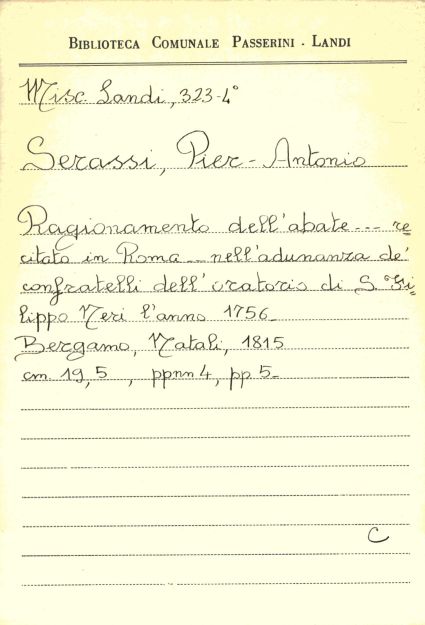 BIBLIOTECA COMUNALE PASSERINI - LANDI
Misc. Landi, 323-4°
Serassi, Pier-Antonio
Ragionamento dell'abate --- re
citato in Roma -- nell'adunanza de'
confratelli dell'oratorio di S. Fi=
lippo Neri l'anno 1756_
Bergamo, Natali, 1815
cm. 19,5 , ppnn 4, pp 5_
C